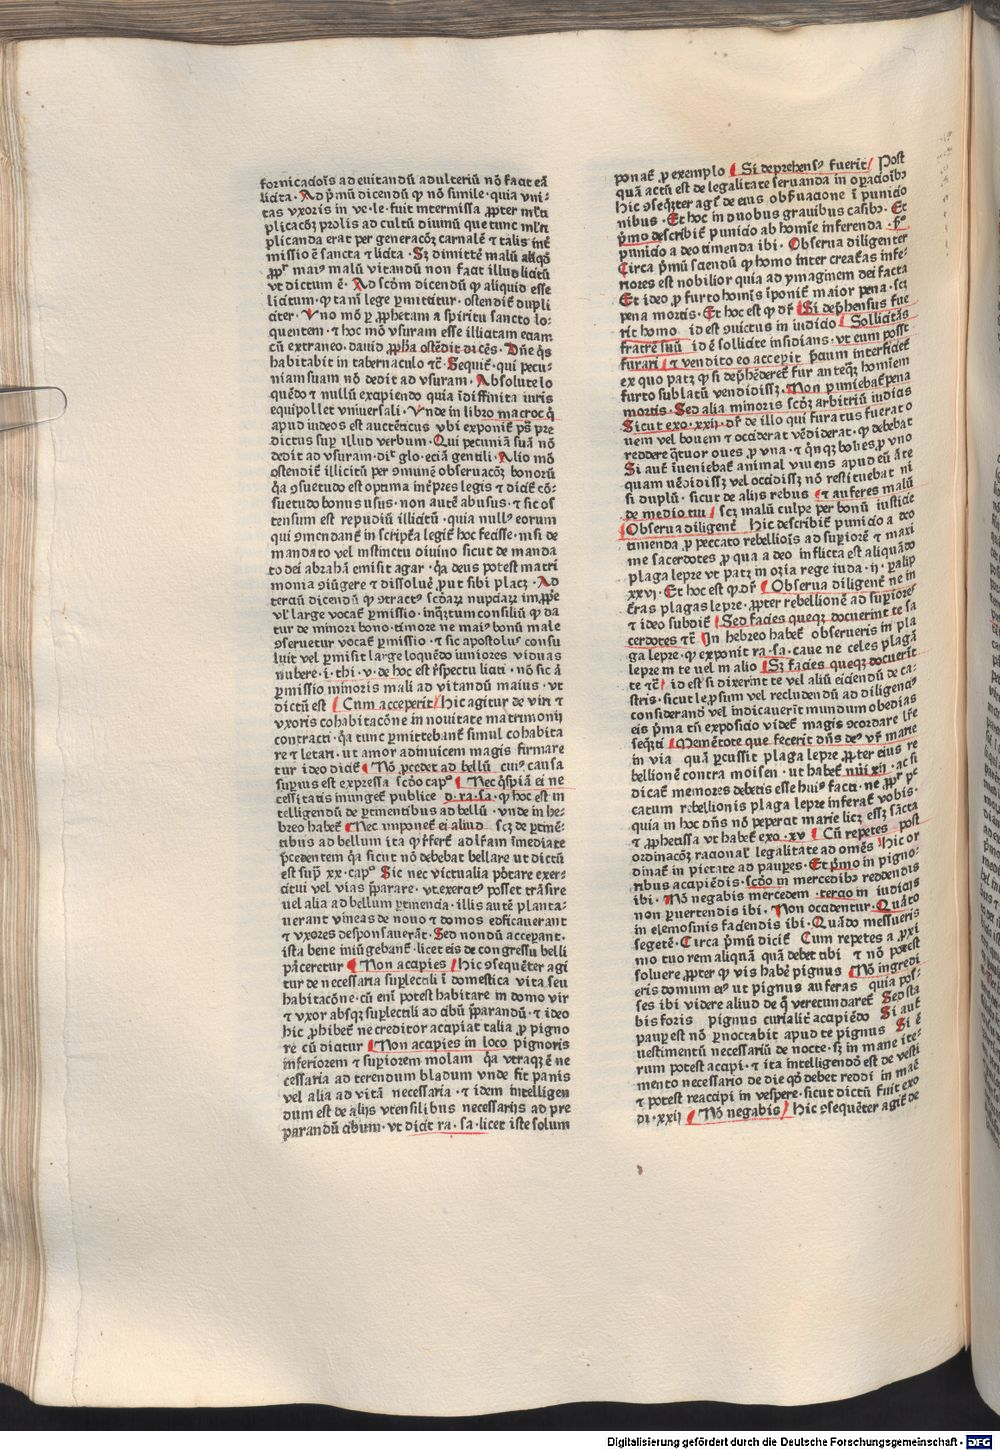 fornicacōis ad euitandū adulteriū nō facit eā
licitā · Ad p̄mū dicendū ꝙ nō simile · quia vni⸗
tas vxoris in ve · le · fuit intermissa ꝓpter ml̄ti
plicacōꝫ prolis ad cultū diuinū que tunc ml̄ti
plicanda erat per generacōꝫ carnalē ⁊ talis int̄
missio ē sancta ⁊ licita · Sꝫ dimittē malū aliqd̄
ꝓpt̓ maiꝰ malū vitandū non facit illud licitū
vt dictum ē · Ad scd̄m dicendū ꝙ aliquid esse
licitum · ꝙ tam̄ lege ꝑmittitur · ostendit̄ dupli
citer · Vno mō ꝑ ꝓphetam a spiritu sancto lo⸗
quentem · ⁊ hoc mō vsuram esse illicitam etiam
cū extraneo · dauid ꝓph̄a ostēdit dicēs · Dn̄e q̄s
habitabit in tabernaculo ⁊c̄ · Sequit̄ · qui pecu⸗
niam suam nō dedit ad vsuram · Absolute lo
quēdo ⁊ nullū excipiendo quia īdiffinita iuris
equipollet vniuersali · Vnde in libro macroc q̄
apud iudeos est auctēticus vbi exponit̄ pꝰ pre
dictus suꝑ illud verbum · Qui pecuniā suā nō
dedit ad vsuram · dic̄ glo · eciā gentili · Alio mō
ostendit̄ illicitū per ꝯmunē obseruacōꝫ bonorū
q̄a ꝯsuetudo est optima int̄pres legis ⁊ dicit̄ cō⸗
suetudo bonus usus · non autē abusus · ⁊ sic os
tensum est repudiū illicitū · quia nullꝰ eorum
qui ꝯmendant̄ in scriptā legit̄ hoc fecisse · nisi de
mandato vel instinctu diuino sicut de manda
to dei abrahā emisit agar · q̄a deus potest matri
monia ꝯiūgere ⁊ dissoluē ꝓut sibi placꝫ · Ad
terciū dicendū ꝙ ꝯtractꝰ scd̄arꝫ nupciarꝫ imꝓp̄e
vl̓ large vocat̄ ꝑmissio · inq̄ꝫtum consiliū ꝙ da
tur de minori bono · timore ne maiꝰ bonū male
ꝯseruetur vocat̄ ꝑmissio · ⁊ sic apostolꝰ consu
luit vel ꝑmisit large loquēdo iuniores viduas
nubere · i · thi · v · de hoc est r̄spectu liciti · nō sic ā
ꝑmissio minoris mali ad vitandū maius · vt
dictū est Cum acceperit hic agitur de viri ⁊
vxoris cohabitacōne in nouitate matrimonij
contracti · q̄a tunc ꝑmittebant̄ simul cohabita
re ⁊ letari · ut amor adinuicem magis firmare
tur ideo dicit̄ Nō ꝓcedet ad bellū cuiꝰ causa
suꝑius est expressa sc̄do capº Nec q̄spiā ei ne
cessitatis iniunget̄ publice d · ra · sa · ꝙ hoc est in
telligendū de ꝑtinentibus ad bellū · vnde in he⸗
breo habet̄ Nec imponet̄ ei aliud scꝫ de ꝑtinē⸗
tibus ad bellum ita ꝙ r̄fert̄ ad lr̄am īmediate
p̄cedentem q̄a sicut nō debebat bellare ut dictū
est sup̄ xx · capº Sic nec victualia portare exer⸗
citui vel vias p̄parare · vt exercitꝰ posset trāsire
uel alia ad bellum ꝑtinencia · illis autē planta⸗
uerant vineas de nouo ⁊ domos edificauerant
⁊ vxores desponsauerāt · Sed nondū acceꝑant ·
ista bene iniūgebant̄ · licet eis de congressu belli
pāceretur Non accipies hic ꝯseq̄nter agi
tur de necessaria suꝑlectili ī domestica vita seu
habitacōne · cū eni potest habitare in domo vir
⁊ vxor absqꝫ suꝑlectili ad cibū p̄parandū · ⁊ ideo
hic ꝓhibet̄ ne creditor accipiat talia ꝓ pigno
re cū dicitur Non accipies in loco pignoris
inferiorem ⁊ suꝑiorem molam q̄a vtraqꝫ ē ne
cessaria ad terendum bladum vnde fit panis
vel alia ad vitā necessaria · ⁊ idem intelligen
dum est de alijs vtensilibus necessarijs ad pre
parandū cibum · vt dicit ra · sa · licet iste solum
ponat̄ ꝓ exemplo Si deprehensꝰ fuerit Post
quā actū est de legalitate seruanda in oꝑacōibꝫ
hic ꝯseq̄ꝫter agit̄ de eius obseruacione ī punicio
nibus · Et hoc in duobus grauibus casibꝫ · Et
p̄mo describit̄ punicio ab homīe inferenda · ſº
punicio a deo timenda ibi · Obserua diligenter
Circa p̄mū sciendū ꝙ homo inter creatas infe⸗
riores est nobilior quia ad ymaginem dei facta
Et ideo ꝓ furto homīs īponit̄ maior pena · scꝫ
pena mortis · Et hoc est ꝙ dr̄ Si dep̄hensus fue
rit homo id est ꝯuictus in iudicio Sollicitās
fratrē suū id ē sollicite insidians · vt eum posst̄
furari ⁊ vendito eo accepit p̄cium interficiet̄
ex quo patꝫ ꝙ si dep̄hēderet̄ fur anteqꝫ hominem
furto sublatū vendidissꝫ · Non puniebat̄ pena
mortis · Sed alia minoris scd̄ꝫ arbitriū iudicis
Sicut exo · xxij · dr̄ de illo qui furatus fuerat o
uem vel bouem ⁊ occiderat vēdiderat · ꝙ debebat
reddere q̄tuor oues ꝓ vna · ⁊ q̄nqꝫ boues ꝓ vno
Si aut̄ īueniebat̄ animal viuens apud eū āte
quam uēdidissꝫ vel occidissꝫ nō restituebat ni
si duplū · sicut de alijs rebus ⁊ auferes malū
de medio tui scꝫ malū culpe per bonū iusticie
Obserua diligent̄ Hic describit̄ punicio a deo
timenda ꝓ peccato rebellionis ad suꝑiorē ⁊ maxi
me sacerdotes ꝓ qua a deo inflicta est aliquādo
plaga lepre vt patꝫ in ozia rege iuda · ij · ꝑalip
xxvj · Et hoc est ꝙ dr̄ Obserua diligent̄ ne in
cͥras plagas lepre · ꝓpter rebellionē ad suꝑiores
⁊ ideo subdit̄ Sed facies queqꝫ docuerint te sa
cerdotes ⁊c̄ In hebreo habet̄ obserueris in pla
ga lepre · ꝙ exponit ra · sa · caue ne celes plagā
lepre in te uel in alio Sꝫ facies queqꝫ docuerit̄
te ⁊c̄ id est si dixerint te vel aliū eiciendū de ca⸗
stris · sicut leꝓsum vel recludendū ad diligenciꝰ
considerand̄ vel indicauerit mundum obedias
eis p̄ma tn̄ exposicio videt̄ magis ꝯcordare lr̄e
seq̄nti Memētote que fecerit dn̄s deꝰ vr̄ marie
in via quā ꝑcussit plaga lepre ꝓpter eius re
bellionē contra moisen · ut habet̄ nūi xij · ac si
dicat̄ memores debetis esse huiꝰ facti · ne ꝓpt̓ pc
catum rebellionis plaga lepre inferat̄ vobis ·
quia in hoc dn̄s nō peꝑcit marie licꝫ essꝫ sācta
⁊ ꝓphetissa vt habet̄ exo · xv Cū repetes post
ordinacōꝫ racional̓ legalitate ad omēs hic or
dinat̄ in pietate ad pauꝑes · Et p̄mo in pigno⸗
ribus accipiēdis · sc̄do in mercedibꝫ reddendis
ibi · Nō negabis mercedem · tercio in iudicijs
non ꝑuertendis ibi · Non occidentur · Quarto
in elemosinis faciendis ibi · Quādo messueris
segetē · Circa p̄mū dicit̄ Cum repetes a ꝓxi
mo tuo rem aliquā quā debet tibi ⁊ nō potest
soluere ꝓpter ꝙ vis habē pignus Nō ingredi
eris domum eiꝰ ut pignus auferas quia pos⸗
ses ibi videre aliud de q̄ verecundaret̄ Sed sta
bis foris pignus curialit̄ accipiēdo Si aut̄
pauꝑ est nō ꝑnoctabit apud te pignus Si ē
uestimentū necessariū de nocte · sꝫ in mane ite⸗
rum potest accipi · ⁊ ita intelligendō est de vesti
mento necessario de die qd̄ debet reddi in maē
⁊ potest reaccipi in vespere · sicut dictū fuit exo
di · xxij Nō negabis Hic ꝯseq̄nter agit̄ de
Digitalisierung gefördert durch die Deutsche Forschungsgemeinschaft - DFG